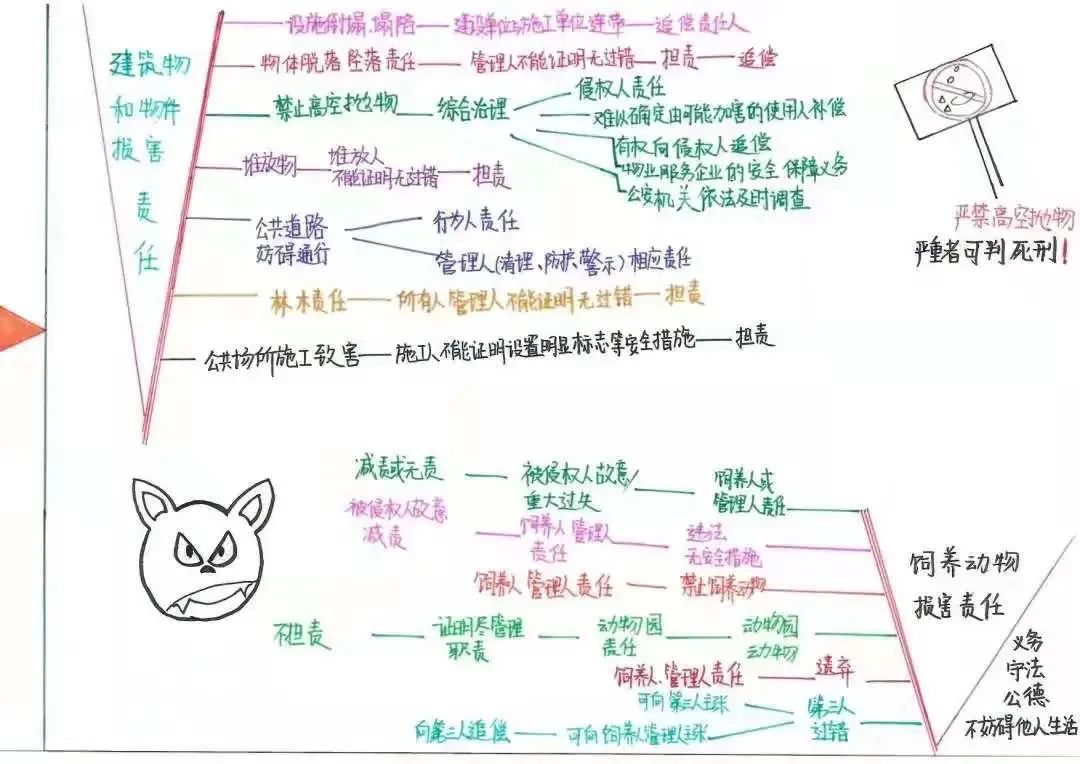 建筑物
和物件
损害
责
任
设施倒塌、塌陷 建设单位与施工单位连带 追偿责任人
物体脱落坠落责任 管理人不能证明无过错 担责 追偿
禁止高空抛物 综合治理
侵权人责任
难以确定由可能加害的使用人补偿
有权向侵权人追偿
物业服务企业的安全保障义务
公安机关依法及时调查
堆放物 堆放人
不能证明无过错 担责
公共道路
妨碍通行
行为人责任
管理人(清理、防护、警示)相应责任
林木责任 所有人管理人不能证明无过错 担责
公共场所施工致害 施工人不能证明设置明显标志等安全措施 担责
严禁高空抛物
严重者可判死刑!
减责或无责 被侵权人故意/
重大过失
饲养人或
管理人责任
被侵权人故意
减责
饲养人管理人
责任
违法
无安全措施
饲养人管理人责任 禁止饲养动物
不担责 证明尽管理
职责
动物园
责任
动物园
动物
饲养人、管理人责任 遗弃
可向第三人主张
向第三人追偿 可向饲养人管理人主张
第三人
过错
饲养动物
损害责任
义务
守法
公德
不妨碍他人生活